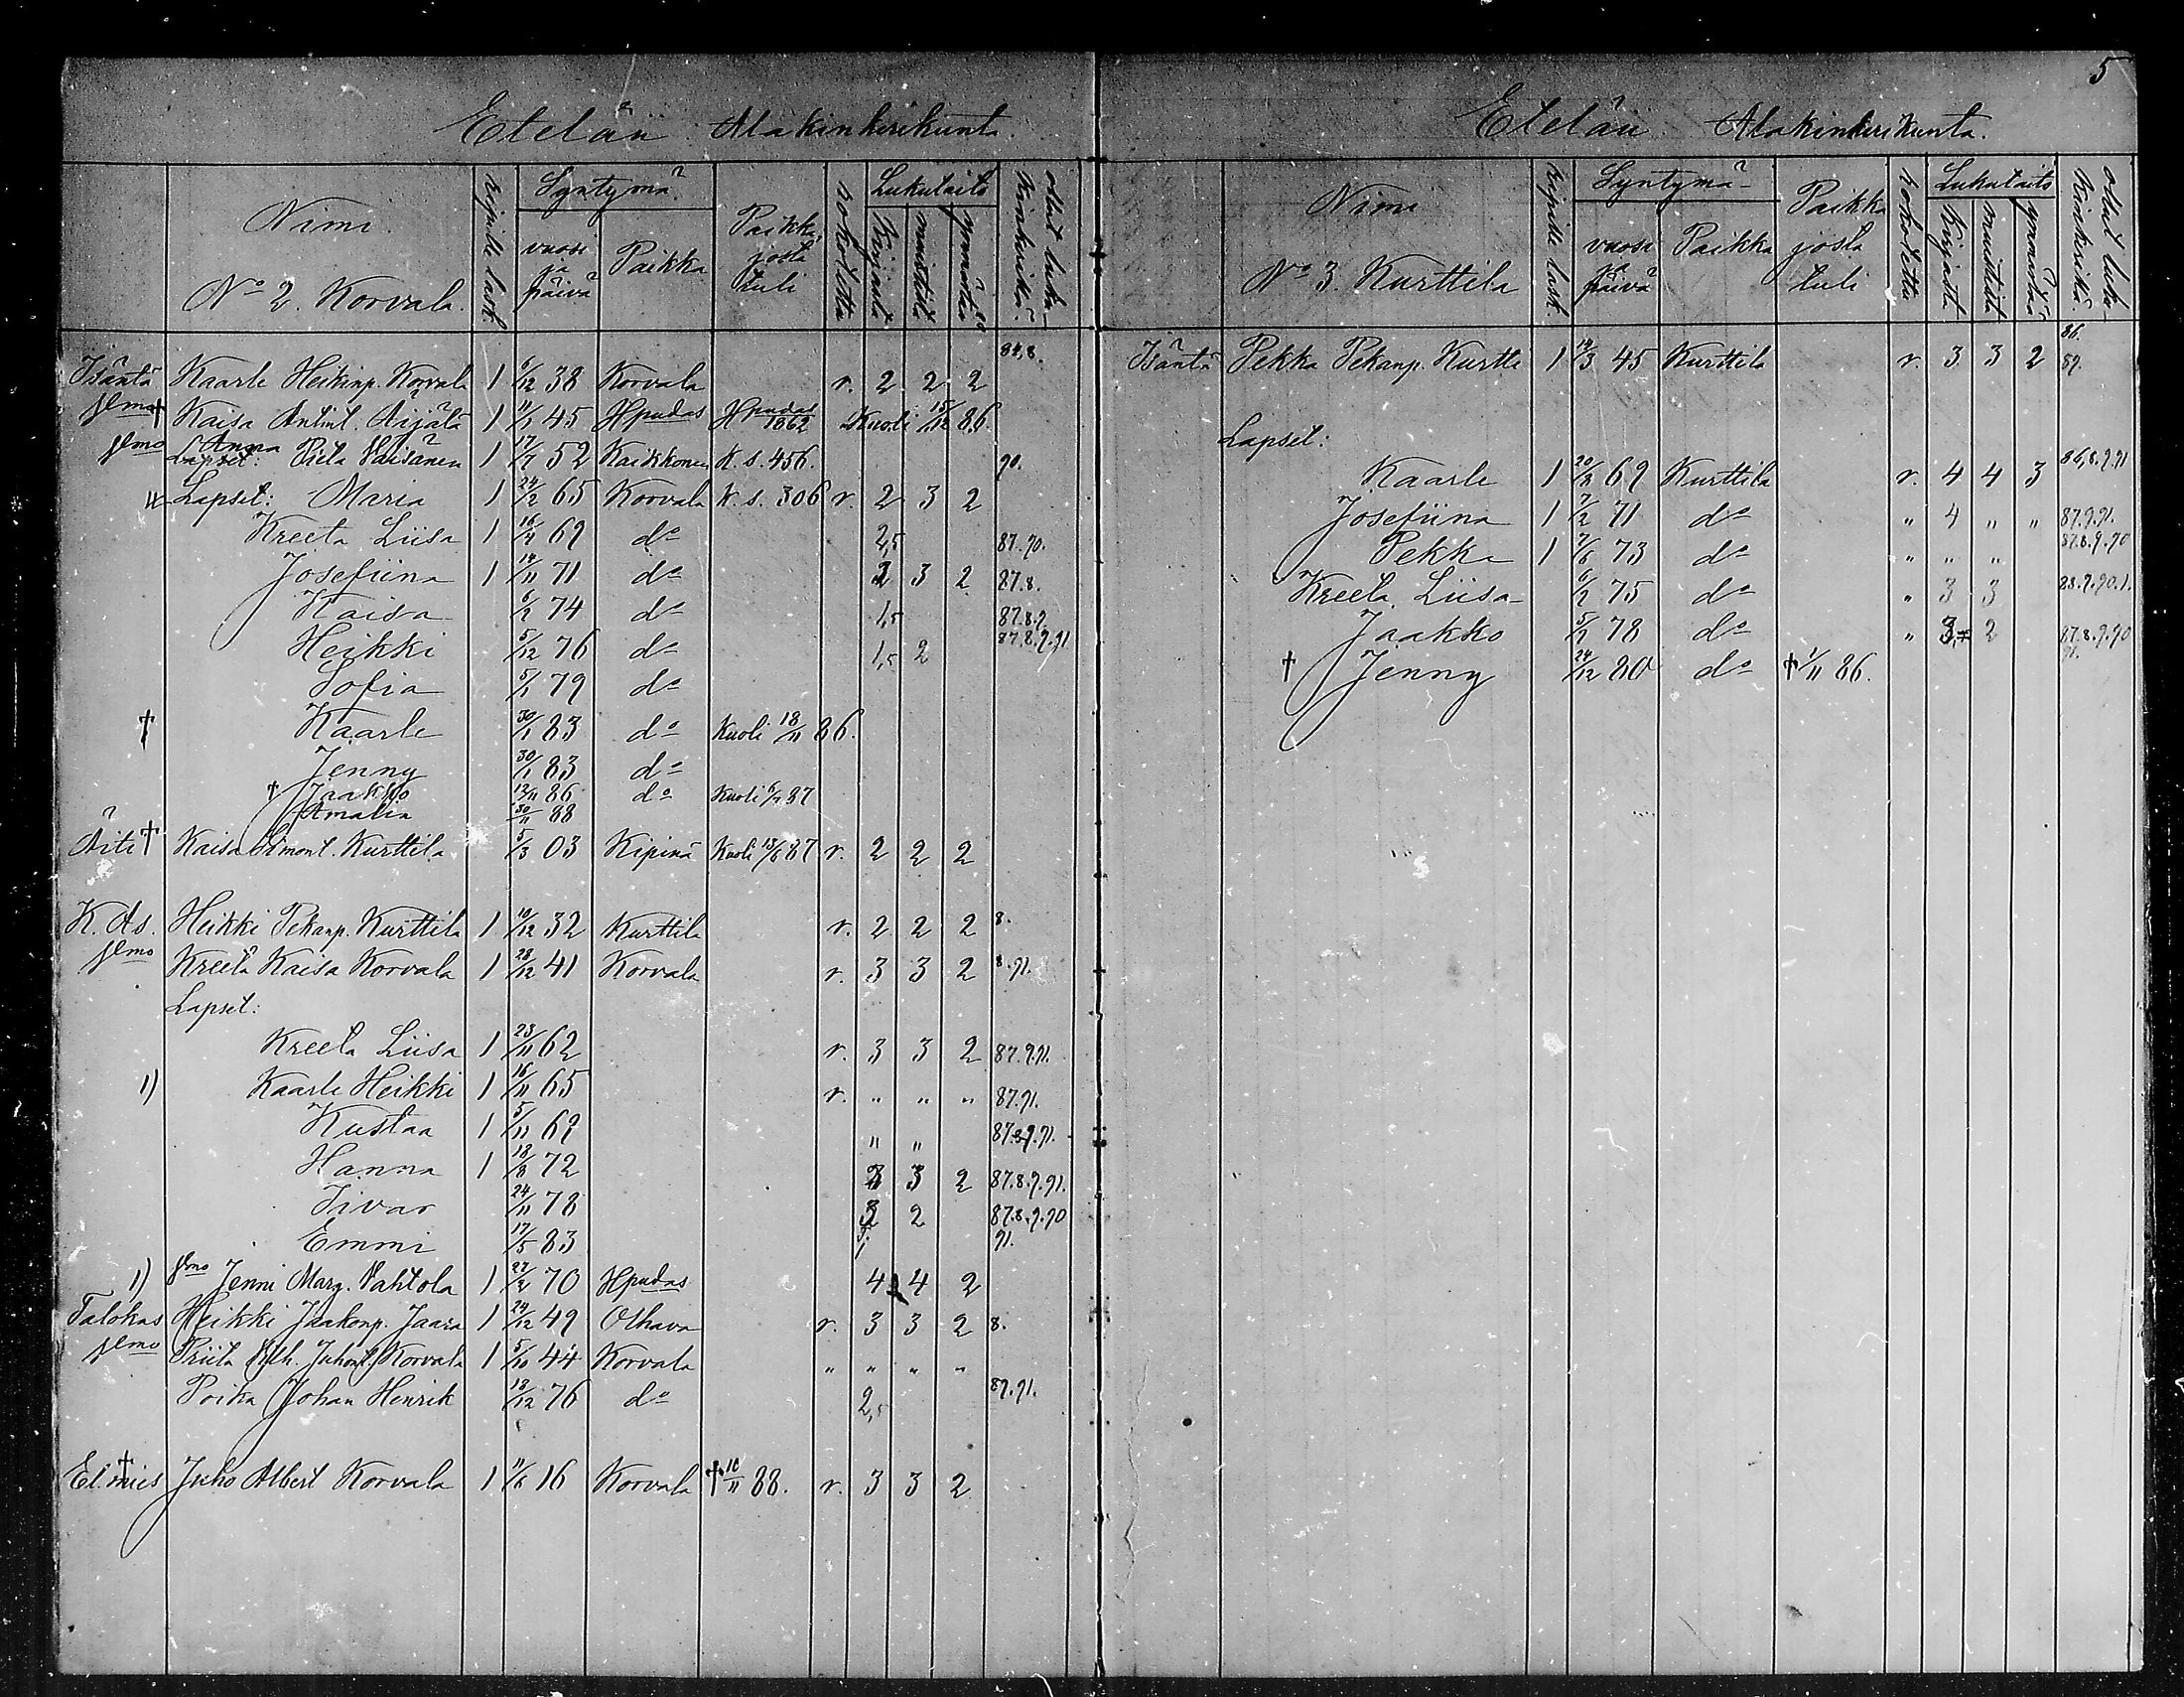 Etelän Alakinkerikunta.
Nimi.
No 2. Korvala.
Ripille lask.
Syntymä
vuosi ja päivä
Paikka
Paikka josta tuli
rokotettu
Lukutaito
kirjasta
muistista
ymmärtää
ollut luku-kinkerikä.
Isäntä Kaarle Heikinp. Korvala 1 6/12 38 Korvala r. 2 2 2 87,8.
† Kaisa Antint. Äijälä 1 11/1 45 Hpudas Hpudas 1862 Kuoli 15/12 86.
Anna Pieta Väisänen 1 17/7 52 Kaikkonen K.s. 456. 90.
Lapset: Maria 1 24/2 65 Korvala K.s. 306 r. 2 3 2
Kreeta Liisa 1 16/4 69 do 2,5 87.90.
Josefiina 1 14/11 71 do 3 2 87.8.
Kaisa 6/2 74 do 1,5 87.8.9.
Heikki 5/12 76 do 1,5 2 87.8.9.91
Sofia 5/1 79 do
† Kaarle 30/1 83 do Kuoli 18/11 86.
Jenny 30/1 83 do
† Jaakko 12/11 86 do Kuoli 6/7 87
Amalia 30/11 88
Äiti † Kaisa Simont. Kurttila 5/3 03 Kipinä Kuoli 13/6 87 r. 2 2 2
K. As. Heikki Pekanp. Kurttila 1 10/12 32 Kurttila r. 2 2 2 8.
Kreeta Kaisa Korvala 1 28/12 41 Korvala r. 3 3 2 8.91.
Lapset:
Kreeta Liisa 1 23/11 62 r. 3 3 2 87.9.91.
1) Kaarle Heikki 1 16/11 65 r. " " " 87.91.
Kustaa 1 5/11 69 " " 87.8.9.91.
Hanna 1 18/8 72 3 2 87.8.9.91.
Iivar 24/11 78 2 87.8.9.90
Emmi 17/5 83 91.
1) Jenni Marg. Vahtola 1 27/2 70 Hpudas 4 4 2
Talokas Heikki Jaakonp. Jaara 1 24/12 49 Olhava r. 3 3 2 8.
Priita Juhont. Korvala 1 5/10 44 Korvala " " " "
Poika Johan Henrik 18/12 76 do 2,5 89.91.
El. mies † Juho Albert Korvala 1 11/6 16 Korvala † 10/11 88. r. 3 3 2
5
Etelän Alakinkerikunta.
Nimi
No 3. Kurttila
Ripille lask.
Syntymä-
vuosi ja päivä
Paikka
Paikka josta tuli
rokotettu
Lukutaito
kirjasta
muistista
ymmärtää
ollut luku-kinkerikä.
Isäntä Pekka Pekanp. Kurtti 1 14/3 45 Kurttila r. 3 3 2 86. 89.
Lapset:
Kaarle 1 20/2 69 Kurttila r. 4 4 3 86,8.9.91
Josefiina 1 7/2 71 do " 4 " " 87.9.91.
Pekka 1 7/6 73 do " " " 87.8.9.90
Kreeta Liisa 6/2 75 do " 3 3 88.9.90.1.
Jaakko 5/2 78 do " 3 2 87.8.9.90 91.
† Jenny 24/12 80 do † 1/11 86.